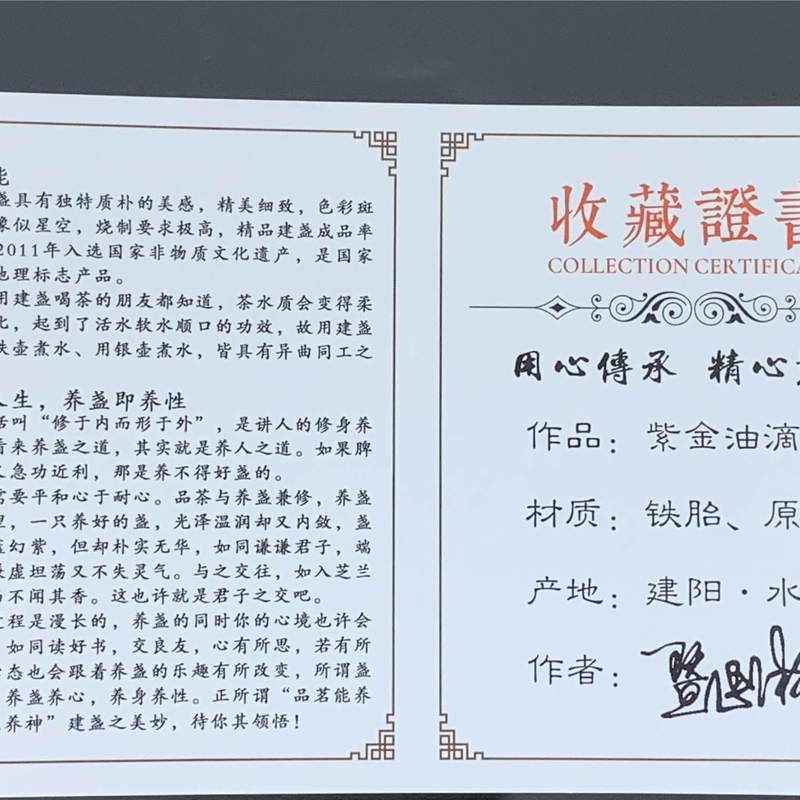 能
盏具有独特质朴的美感，精美细致，色彩斑
像似星空，烧制要求极高，精品建盏成品率
2011年入选国家非物质文化遗产，是国家
地理标志产品。
用建盏喝茶的朋友都知道，茶水质会变得柔
化，起到了活水软水顺口的功效，故用建盏
铁壶煮水、用银壶煮水，皆具有异曲同工之
人生，养盏即养性
话叫“修于内而形于外”，是讲人的修身养
看来养盏之道，其实就是养人之道。如果脾
又急功近利，那是养不得好盏的。
需要平和心于耐心。品茶与养盏兼修，养盏
里，一只养好的盏，光泽温润却又内敛，盏
蓝幻紫，但却朴实无华，如同谦谦君子，端
谦虚坦荡又不失灵气。与之交往，如入芝兰
而不闻其香。这也许就是君子之交吧。
过程是漫长的，养盏的同时你的心境也许会
，如同读好书，交良友，心有所思，若有所
心态也会跟着养盏的乐趣有所改变，所谓盏
，养盏养心，养身养性。正所谓“品茗能养
养神”建盏之美妙，待你其领悟！
收藏證書
COLLECTION CERTIFICA
用心傳承 精心
作品：紫金油滴
材质：铁胎、原
产地：建阳·水
作者：